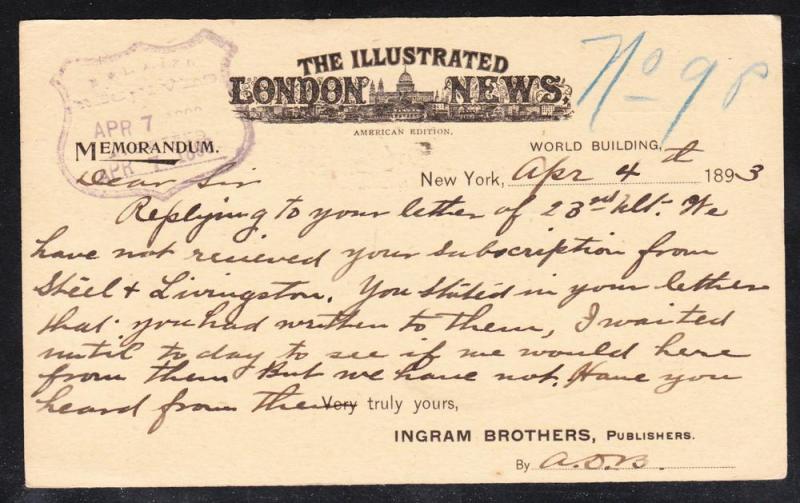 THE ILLUSTRATED
LONDON NEWS.
AMERICAN EDITION.
No 98
RECEIVED
APR 7
APR
MEMORANDUM.
WORLD BUILDING,
New York, Apr 4th 1893
Dear Sir
Replying to your letter of 23rd ult. We
have not recieved your subscription from
Steel & Livingston. You stated in your letter
that you had written to them, I waited
until to day to see if we would here
from them But we have not. Have you
heard from the Very truly yours,
INGRAM BROTHERS, PUBLISHERS.
By A.D.B.